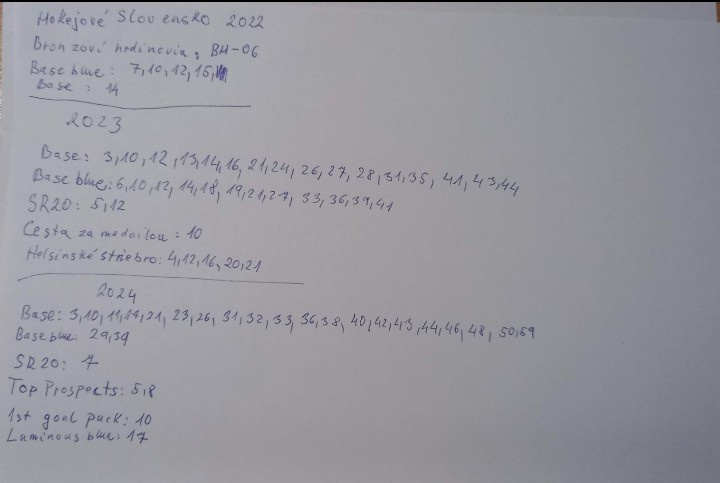 Hokejové Slovensko 2022
Bronzoví hrdinovia: BH-06
Base blue: 7,10,12,15,
Base : 14
2023
Base: 3,10,12,13,14,16,21,24,26,27,28,31,35,41,43,44
Base blue: 6,10,12,14,18,19,21,27,33,36,39,41
SR20: 5,12
Cesta za medailou: 10
Helsinské striebro: 4,12,16,20,21
2024
Base: 3,10,11,14,21,23,26,31,32,33,36,38,40,42,43,44,46,48,50,59
Base blue: 29,39
SR20: 7
Top Prospects: 5,8
1st goal puck: 10
Luminous blue: 17